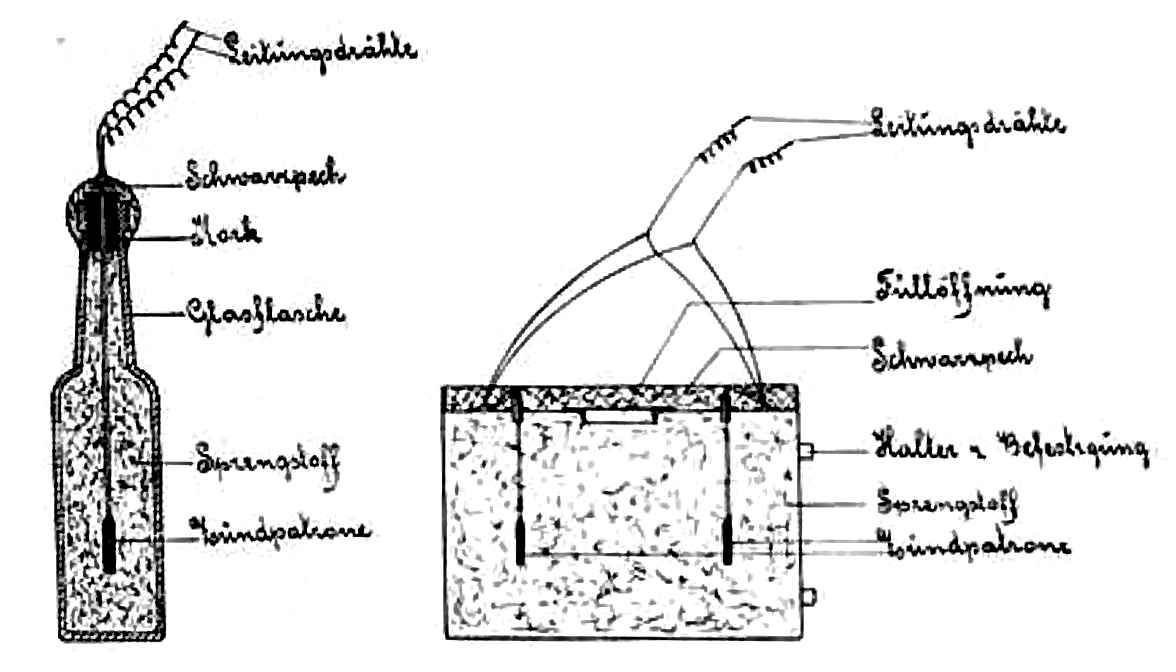 Leitungsdrähte
Schwarzpech
Kork
Glasflasche
Sprengstoff
Zündpatrone
Leitungsdrähte
Füllöffnung
Schwarzpech
Halter u Befestigung
Sprengstoff
Zündpatrone